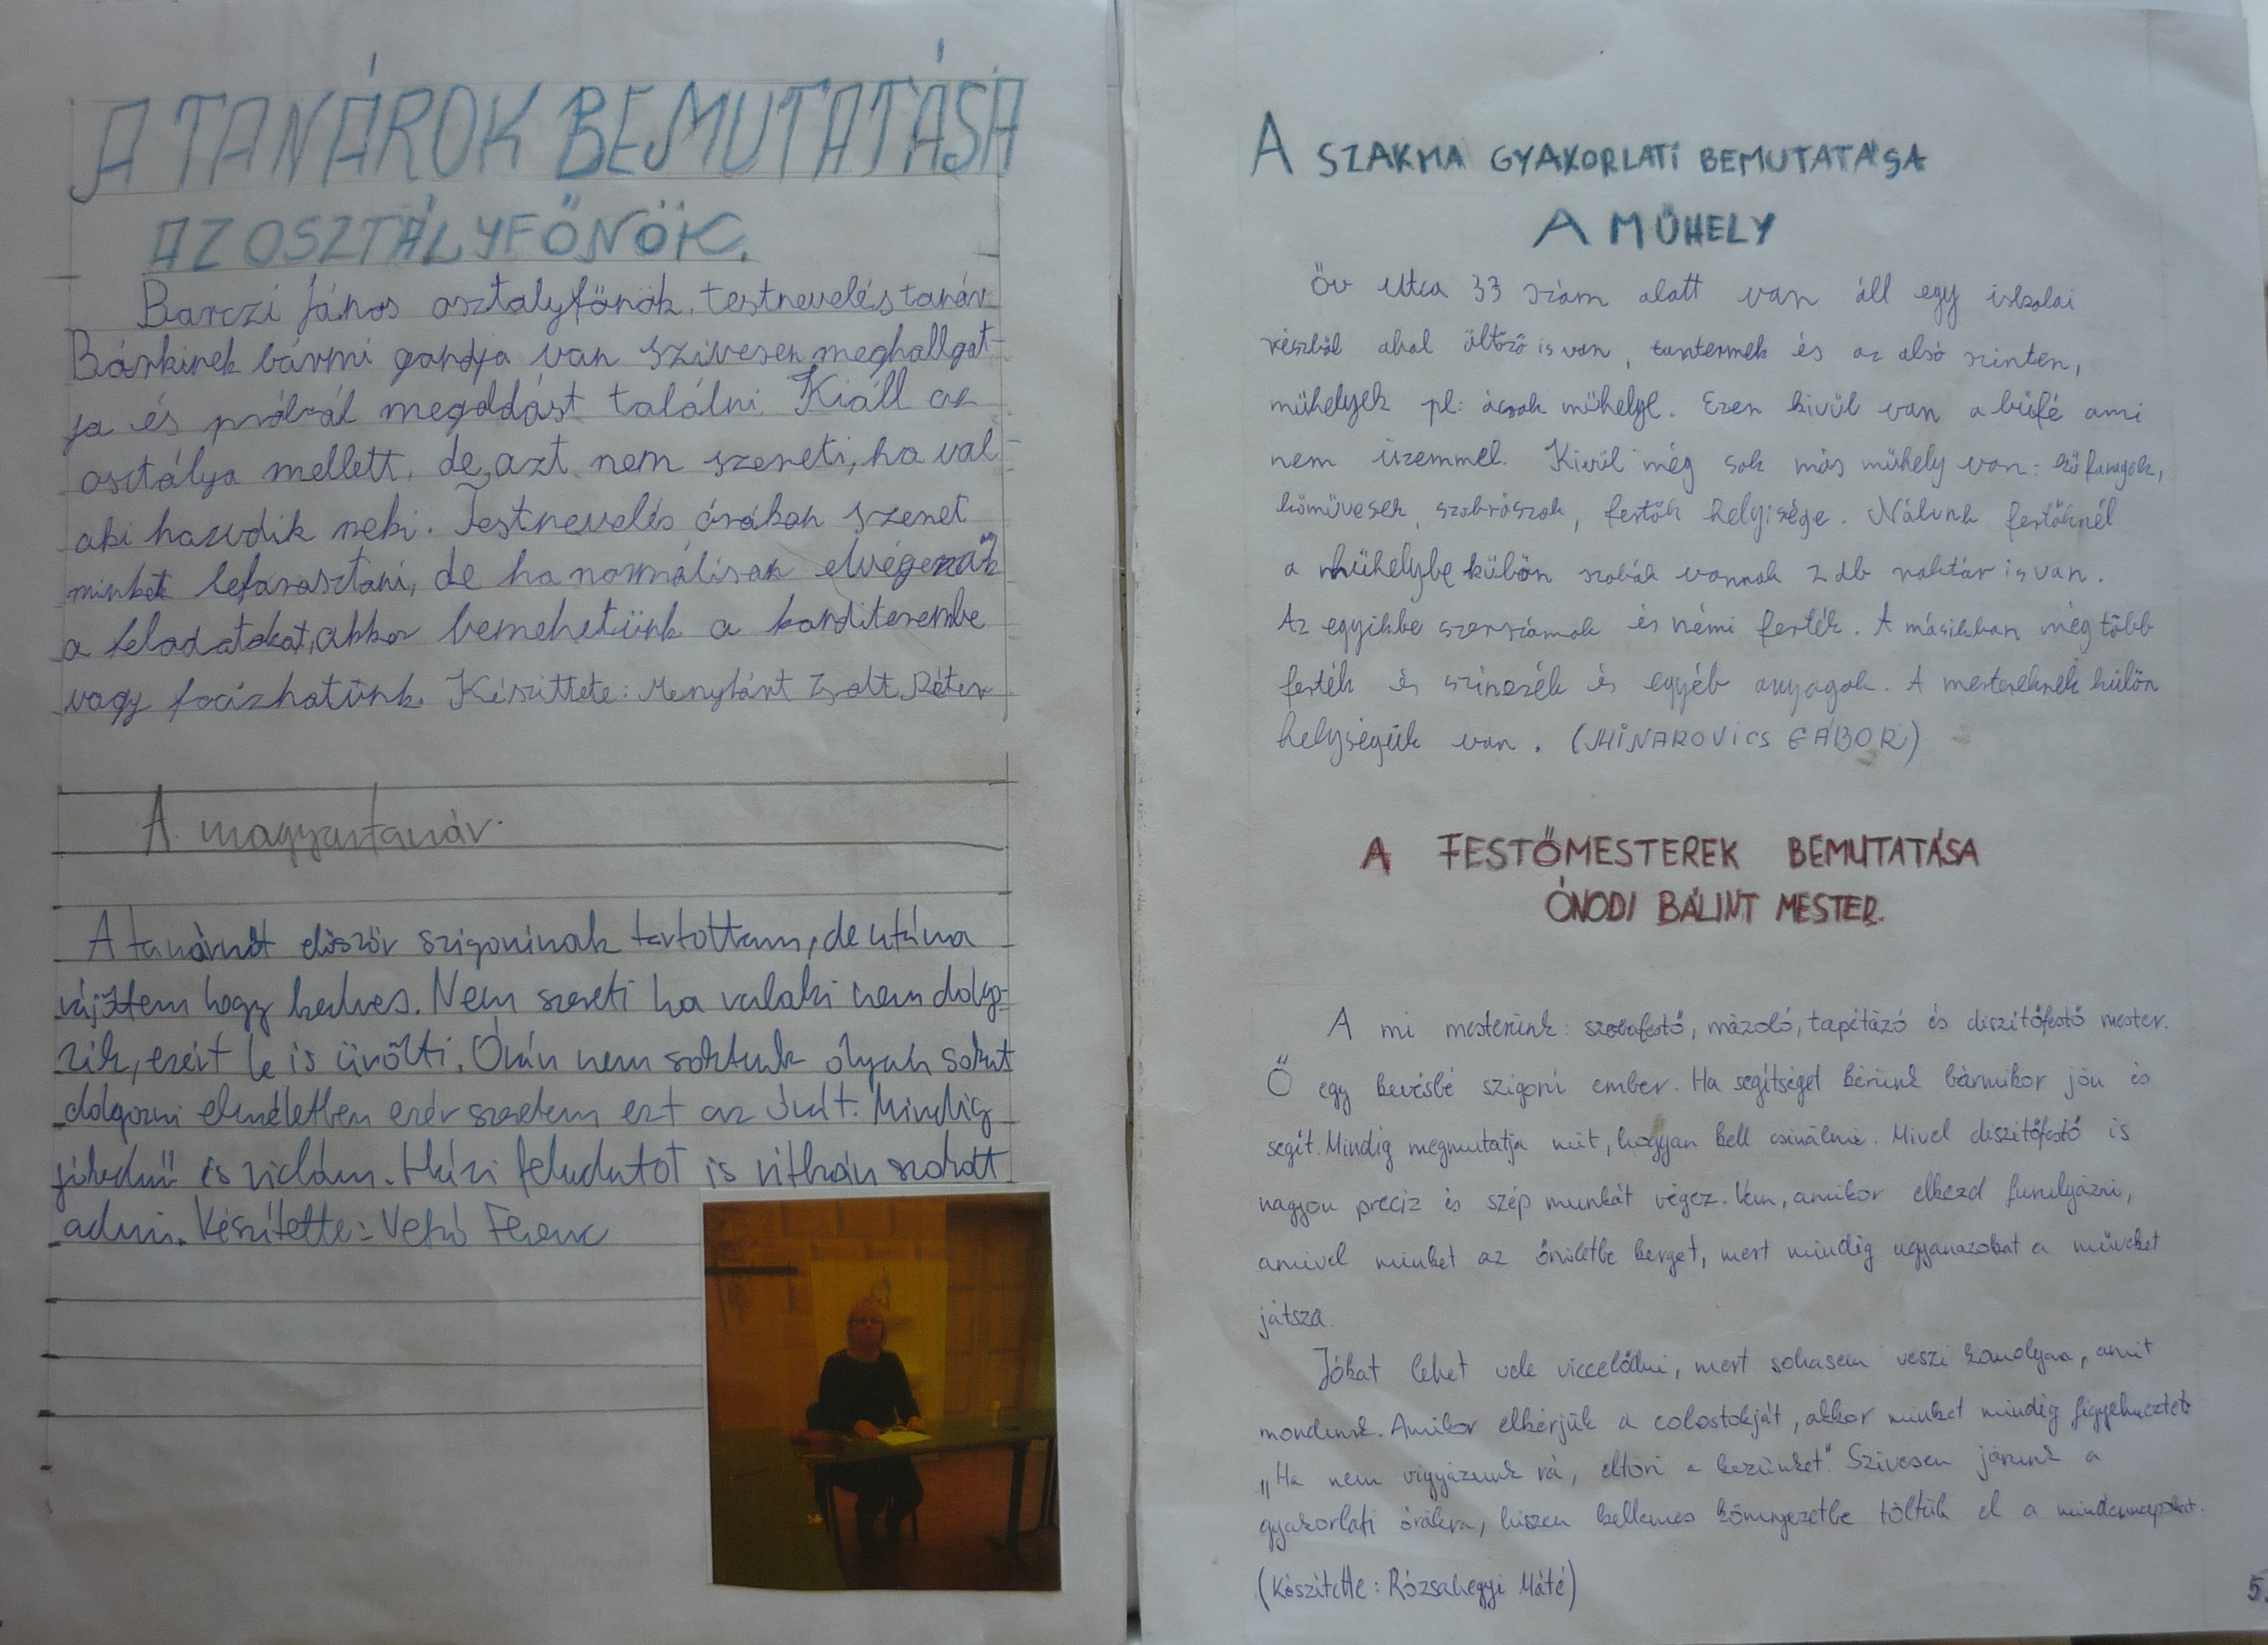 A TANÁROK BEMUTATÁSA
AZ OSZTÁLYFŐNÖK.
Barczi János osztályfőnök, testnevelés tanár
Bárkinek bármi gondja van szívesen meghallgat-
ja és próbál megoldást találni. Kiáll az
osztálya mellett, de azt nem szereti, ha val-
aki hazudik neki. Testnevelés órákon szeret
minket lefárasztani, de ha normálisan elvégezzük
a feladatokat, akkor bemehetünk a konditerembe
vagy focizhatunk. Készittete: Menyhárt Zsolt Péter
A magyartanár.
A tanárnőt először szigorúnak tartottam, de utána
rájöttem hogy kedves. Nem szereti ha valaki nem dolgo-
zik, ezért le is üvölti. Órán nem soktunk olyan sokat
dolgozni elméletben ezér szeretem ezt az órát. Mindig
jókedvű és vidám. Házi feladatot is ritkán szokott
adni. Készítette: Vehó Ferenc
A SZAKMA GYAKORLATi BEMUTATÁSA
A MŰHELY
Öv utca 33 szám alatt van áll egy iskolai
részből ahol öltöző is van, tantermek és az alsó szinten,
műhelyek pl: ácsok műhelye. Ezen kivül van a büfé ami
nem üzemmel. Kivül még sok más műhely van: kőfaragók,
kőmüvesek, szobrászok, festők helyisége. Nálunk festőknél
a műhelybe külön szobák vannak 2 db raktár is van.
Az egyikbe szerszámok és némi festék. A másikban még több
festék és szinezék és egyéb anyagok. A mestereknek külön
helységük van. (MiNAROViCS GÁBOR)
A FESTŐMESTEREK BEMUTATÁSA
ÓNODI BÁLINT MESTER.
A mi mesterünk: szobafestő, mázoló, tapétázó és diszítőfestő mester.
Ő egy kevésbé szigorú ember. Ha segítséget kérünk bármikor jön és
segít. Mindig megmutatja mit, hogyan kell csinálni. Mivel diszítőfestő is
nagyon precíz és szép munkát végez. Van, amikor elkezd furulyázni,
amivel minket az őrületbe kerget, mert mindig ugyanazokat a műveket
játsza.
Jókat lehet vele viccelődni, mert sohasem veszi komolyan, amit
mondunk. Amikor elkérjük a colostokját, akkor minket mindig figyelmeztet:
„Ha nem vigyázunk rá, eltöri a kezünket". Szívesen járunk a
gyakorlati órákra, hiszen kellemes környezetbe töltük el a mindennapokat.
(Készítette: Rózsahegyi Máté)
5.